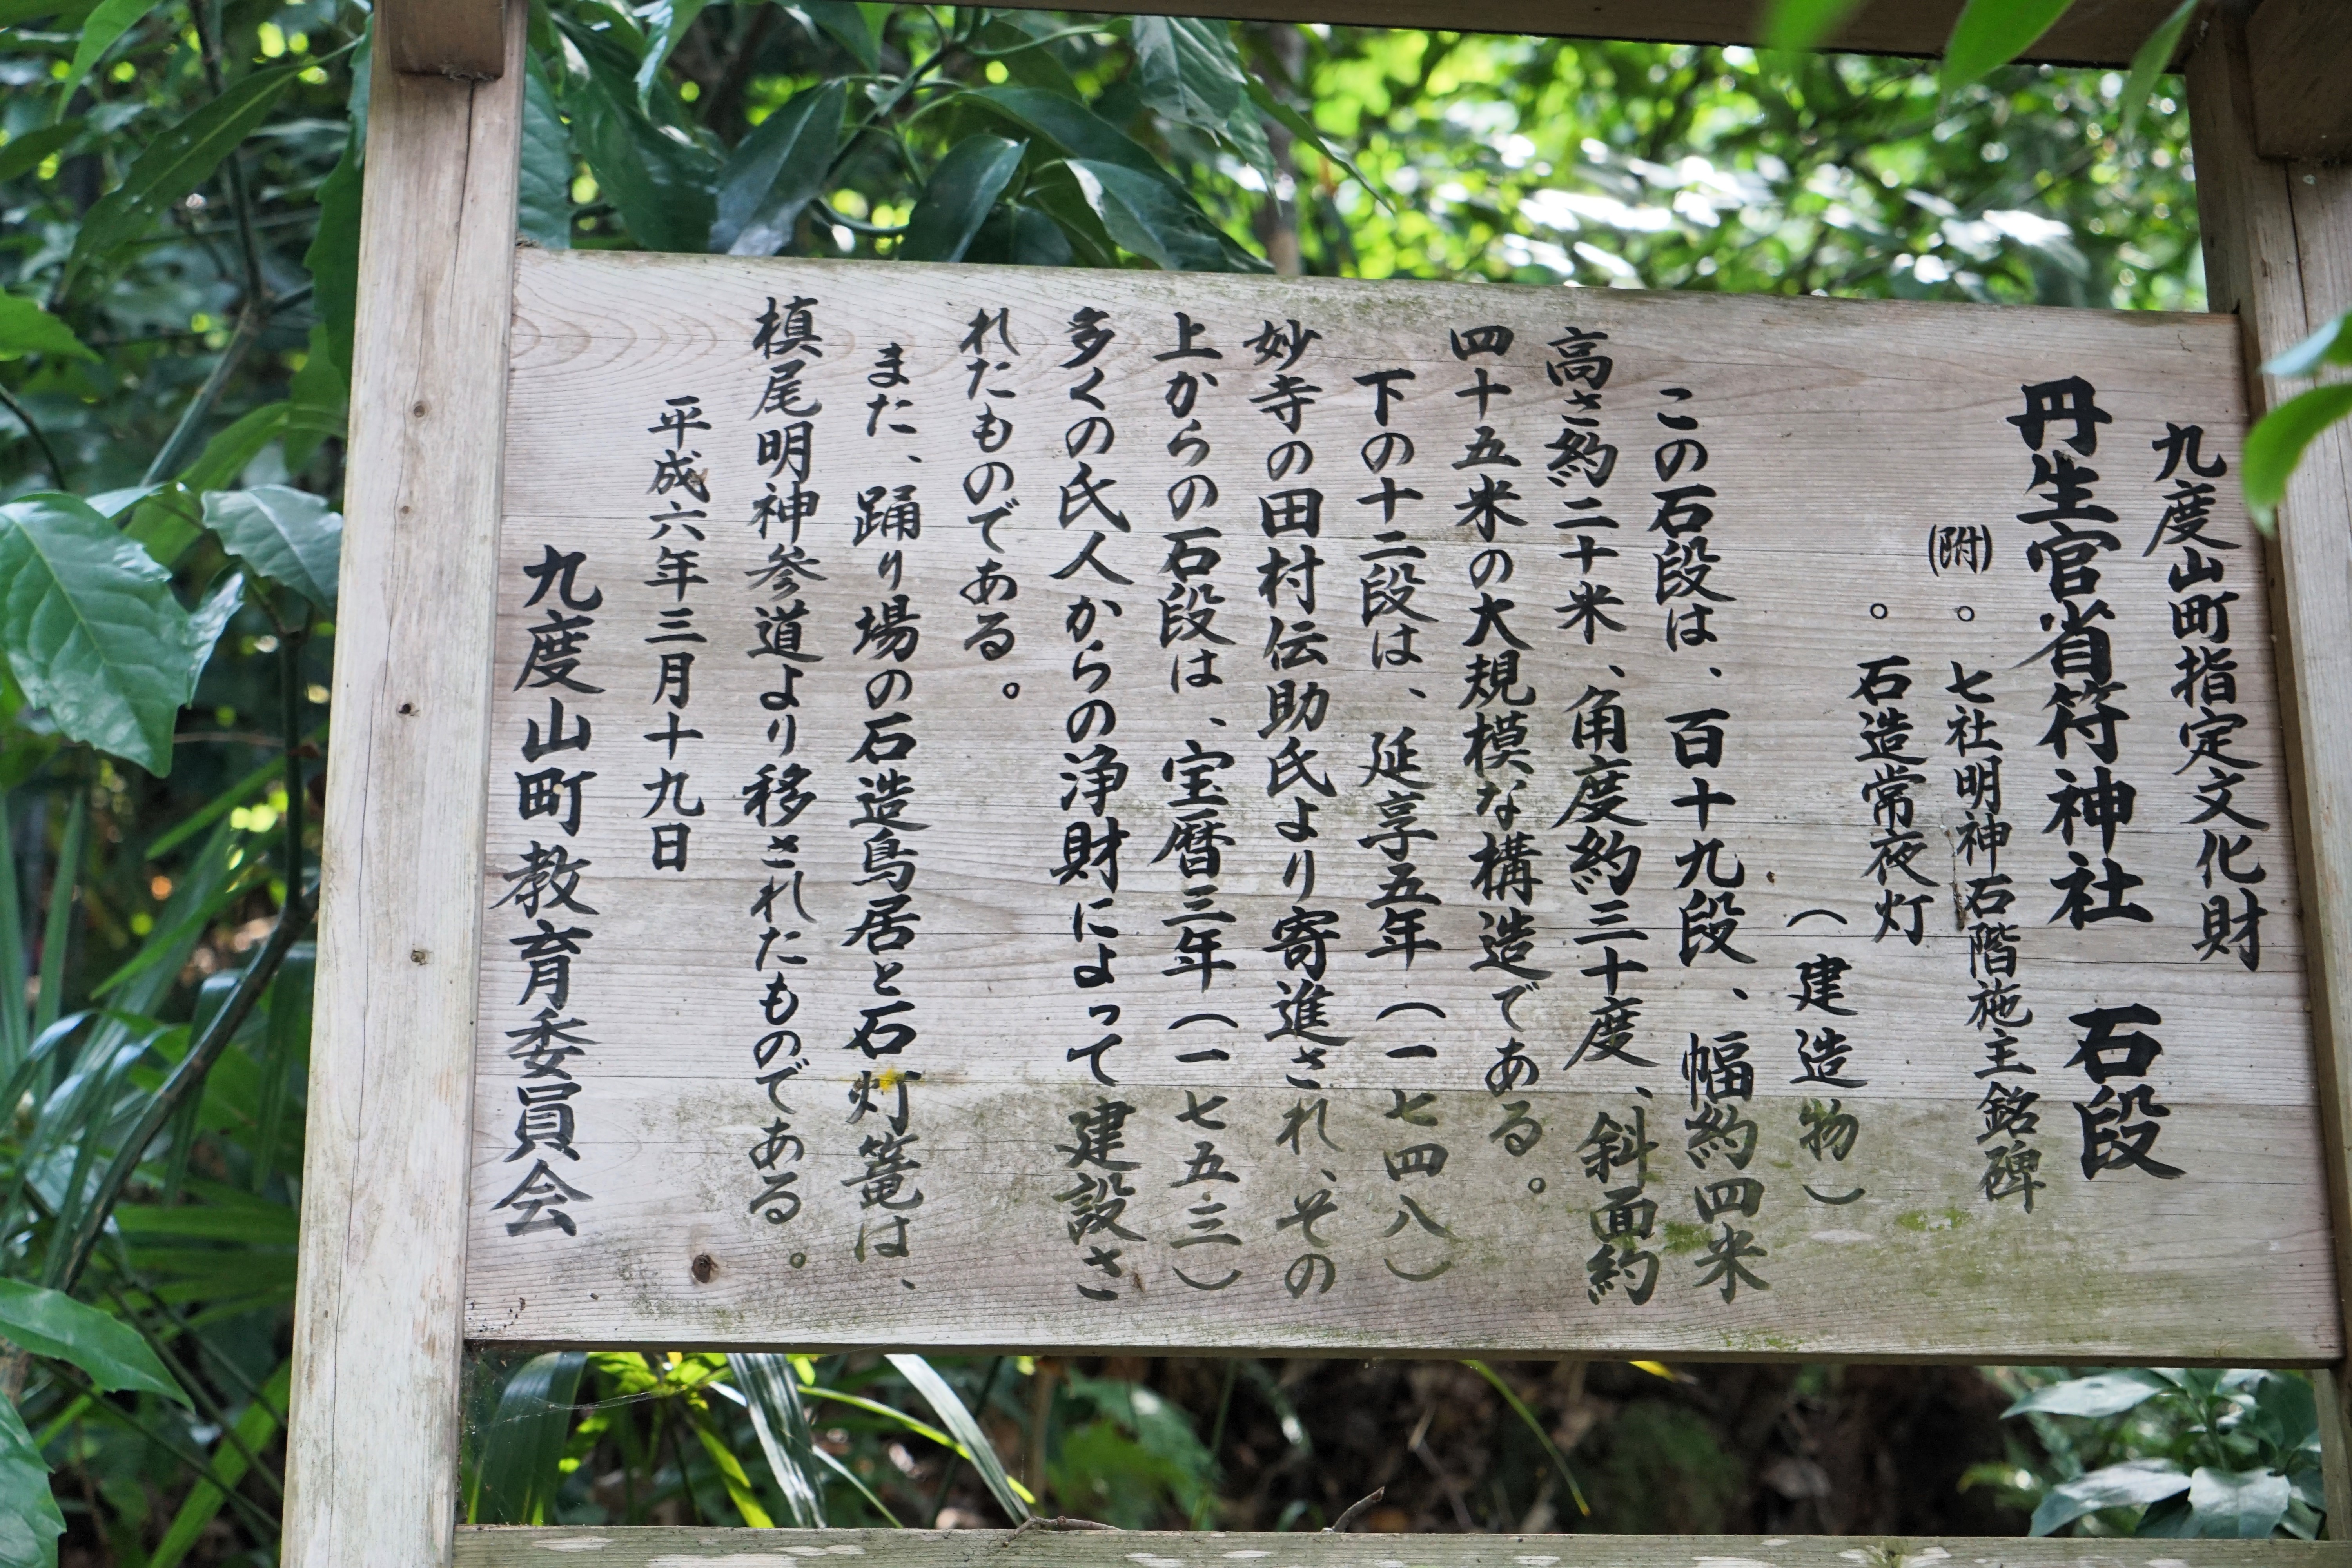 九度山町指定文化財
丹生官省符神社　石段
(附)。七社明神石階施主銘碑
。石造常夜灯
（建造物）
この石段は、百十九段、幅約四米
高さ約二十米、角度約三十度、斜面約
四十五米の大規模な構造である。
下の十二段は、延享五年（一七四八）
妙寺の田村伝助氏より寄進され、その
上からの石段は、宝暦三年（一七五三）
多くの氏人からの浄財によって建設さ
れたものである。
また、踊り場の石造鳥居と石灯篭は、
槙尾明神参道より移されたものである。
平成六年三月十九日
九度山町教育委員会